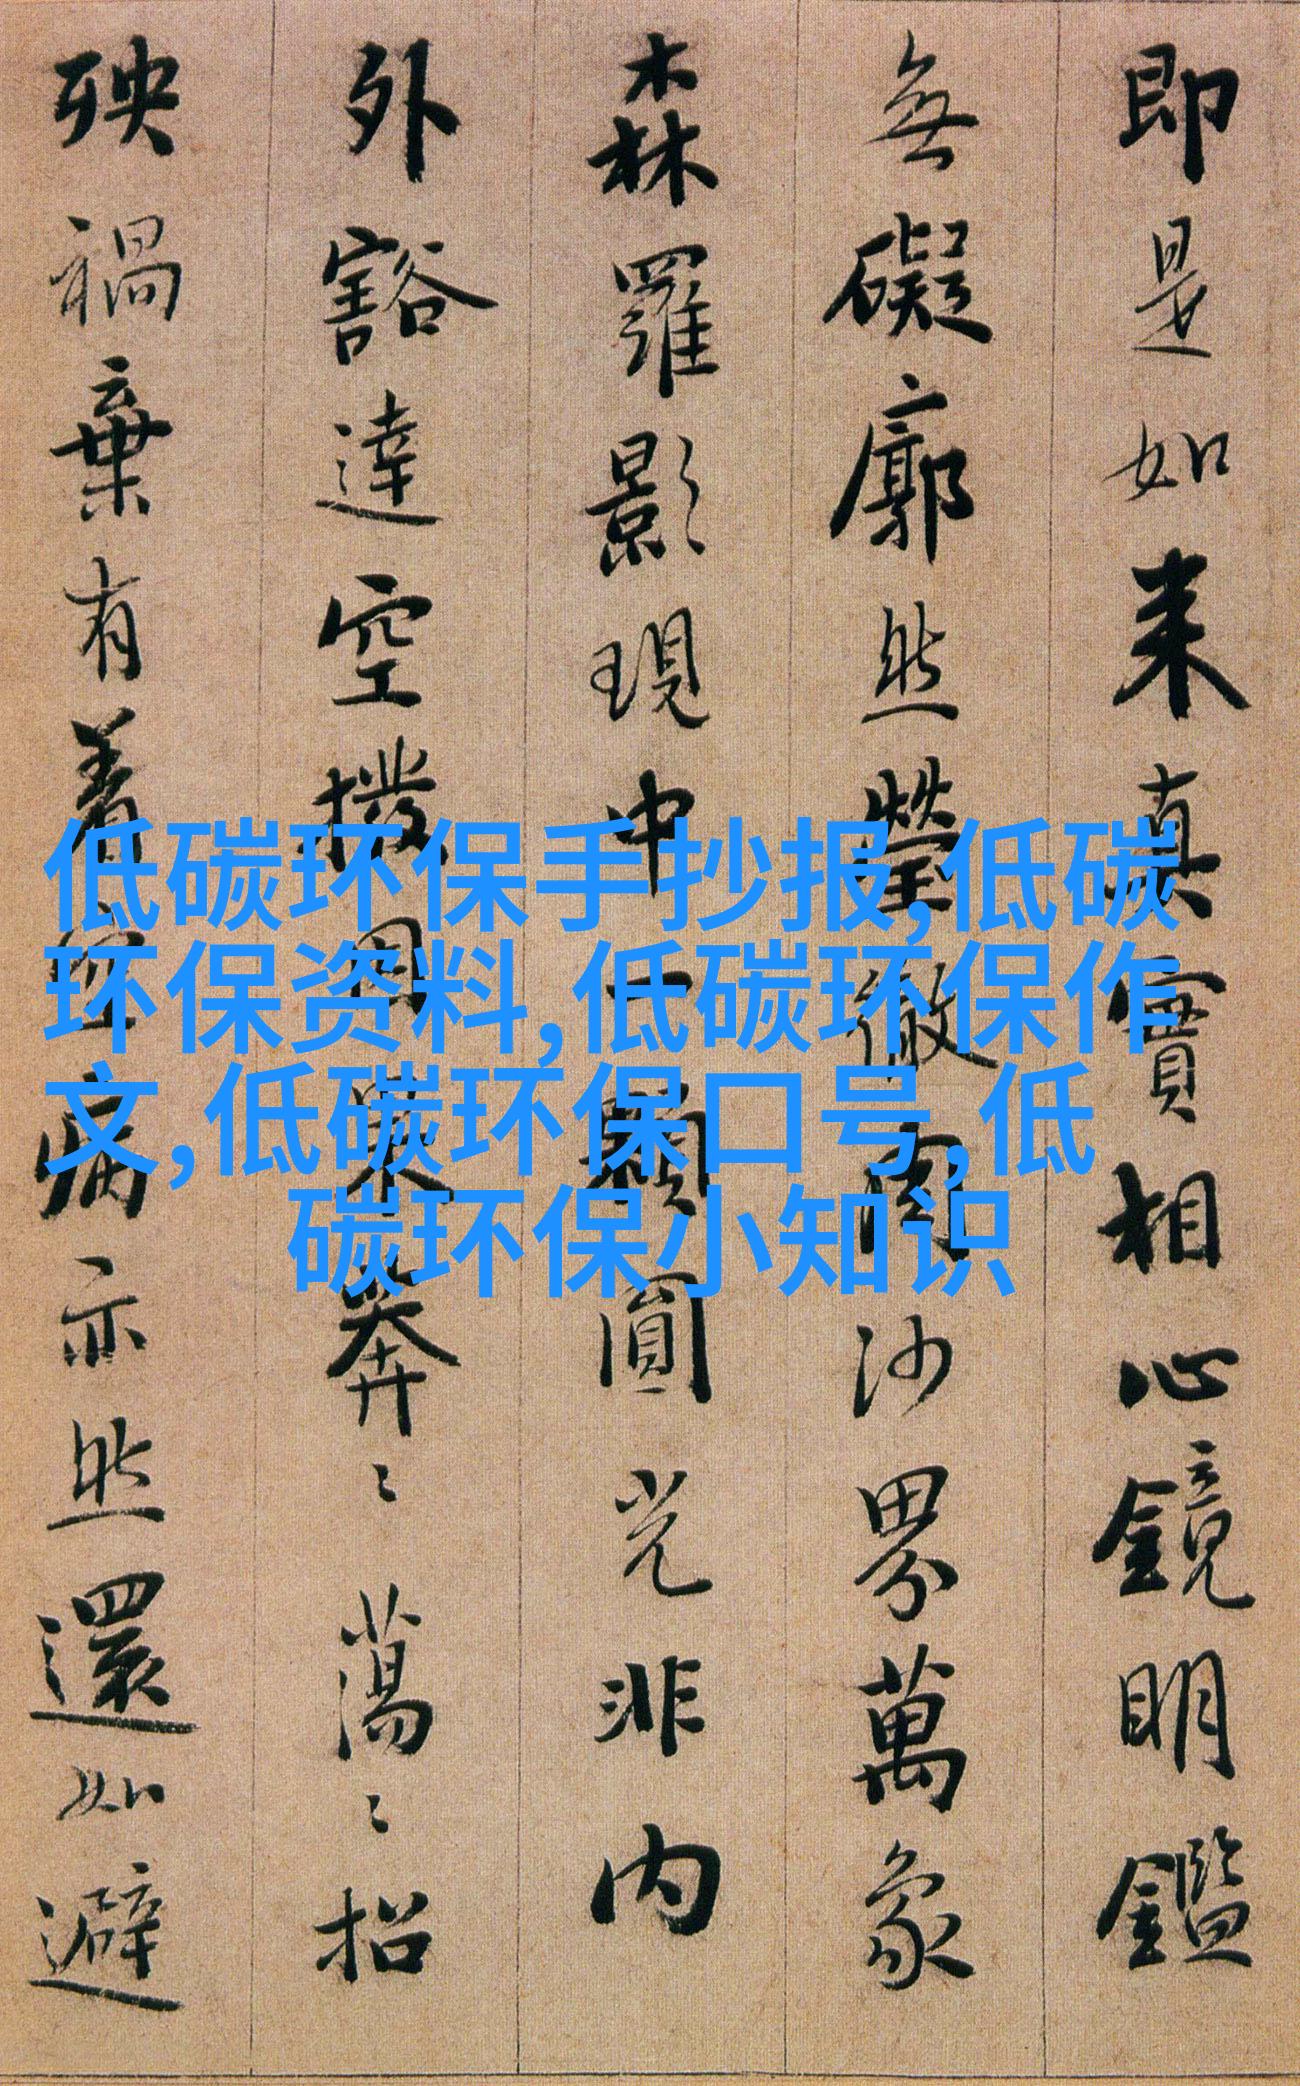 即是如来真實相心鏡明鑑
無礙廓然瑩徹周沙界萬象
森羅影現中一顆圓光非内
外豁達空撥因果莽〻蕩〻招
殃禍棄有着空病亦然還如避
低碳环保手抄报,低碳
环保资料,低碳环保作
文,低碳环保口号,低
碳环保小知识